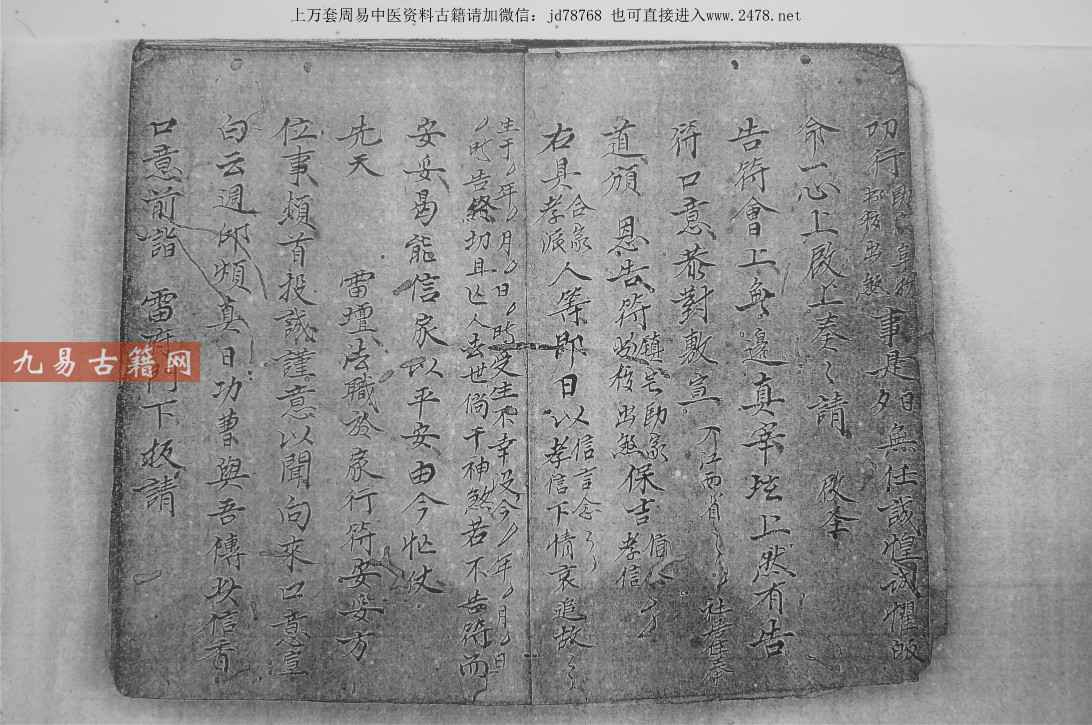 上万套周易中医资料古籍请加微信：jd78768 也可直接进入www.2478.net
叩行 事是夕日無任誠惶誠懼
命一心上啟上奏〻請 啟奎
告符會上無邉真宰坛上然有告
符口意恭對敷宣 江西省〻〻社居奉
道頒恩告符 鎮宅助家 保吉 孝信
右具 合家孝派 人等即日以 信言念〻 孝信下情哀追故〻
生于〻年〻月〻日〻時受生不幸没今〻年〻月〻日
〻时告終切且亡人去世倘干神煞若不告符而
安妥曷能信家以平安由今忙仗
先天 雷壇法職於家行符安妥方
位事頫首投誠謹意以聞向來口意宣
白云週即煩真日功曹與吾傳此信音
口意前詣 雷府門下投請
九易古籍网